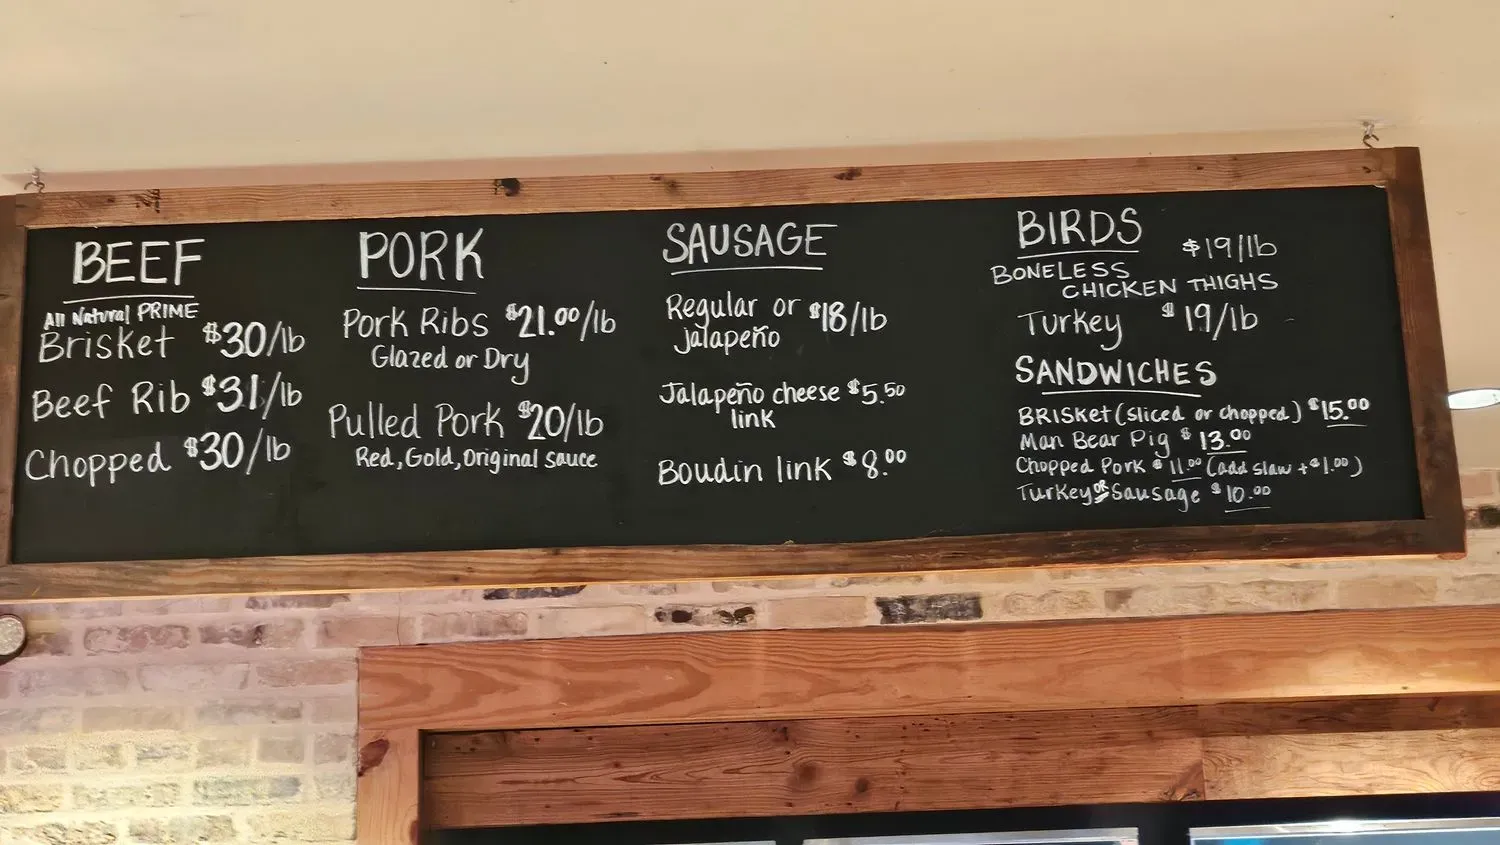 BEEF
All Natural PRIME
Brisket $30/lb
Beef Rib $31/lb
Chopped $30/lb
PORK
Pork Ribs $21.00/lb
Glazed or Dry
Pulled Pork $20/lb
Red, Gold, Original sauce
SAUSAGE
Regular or $18/lb
jalapeño
Jalapeño cheese $5.50
link
Boudin link $8.00
BIRDS
$19/lb
BONELESS
CHICKEN THIGHS
Turkey $19/lb
SANDWICHES
BRISKET (sliced or chopped) $15.00
Man Bear Pig $13.00
Chopped Pork $11.00 (add slaw +$1.00)
Turkey OR Sausage $10.00